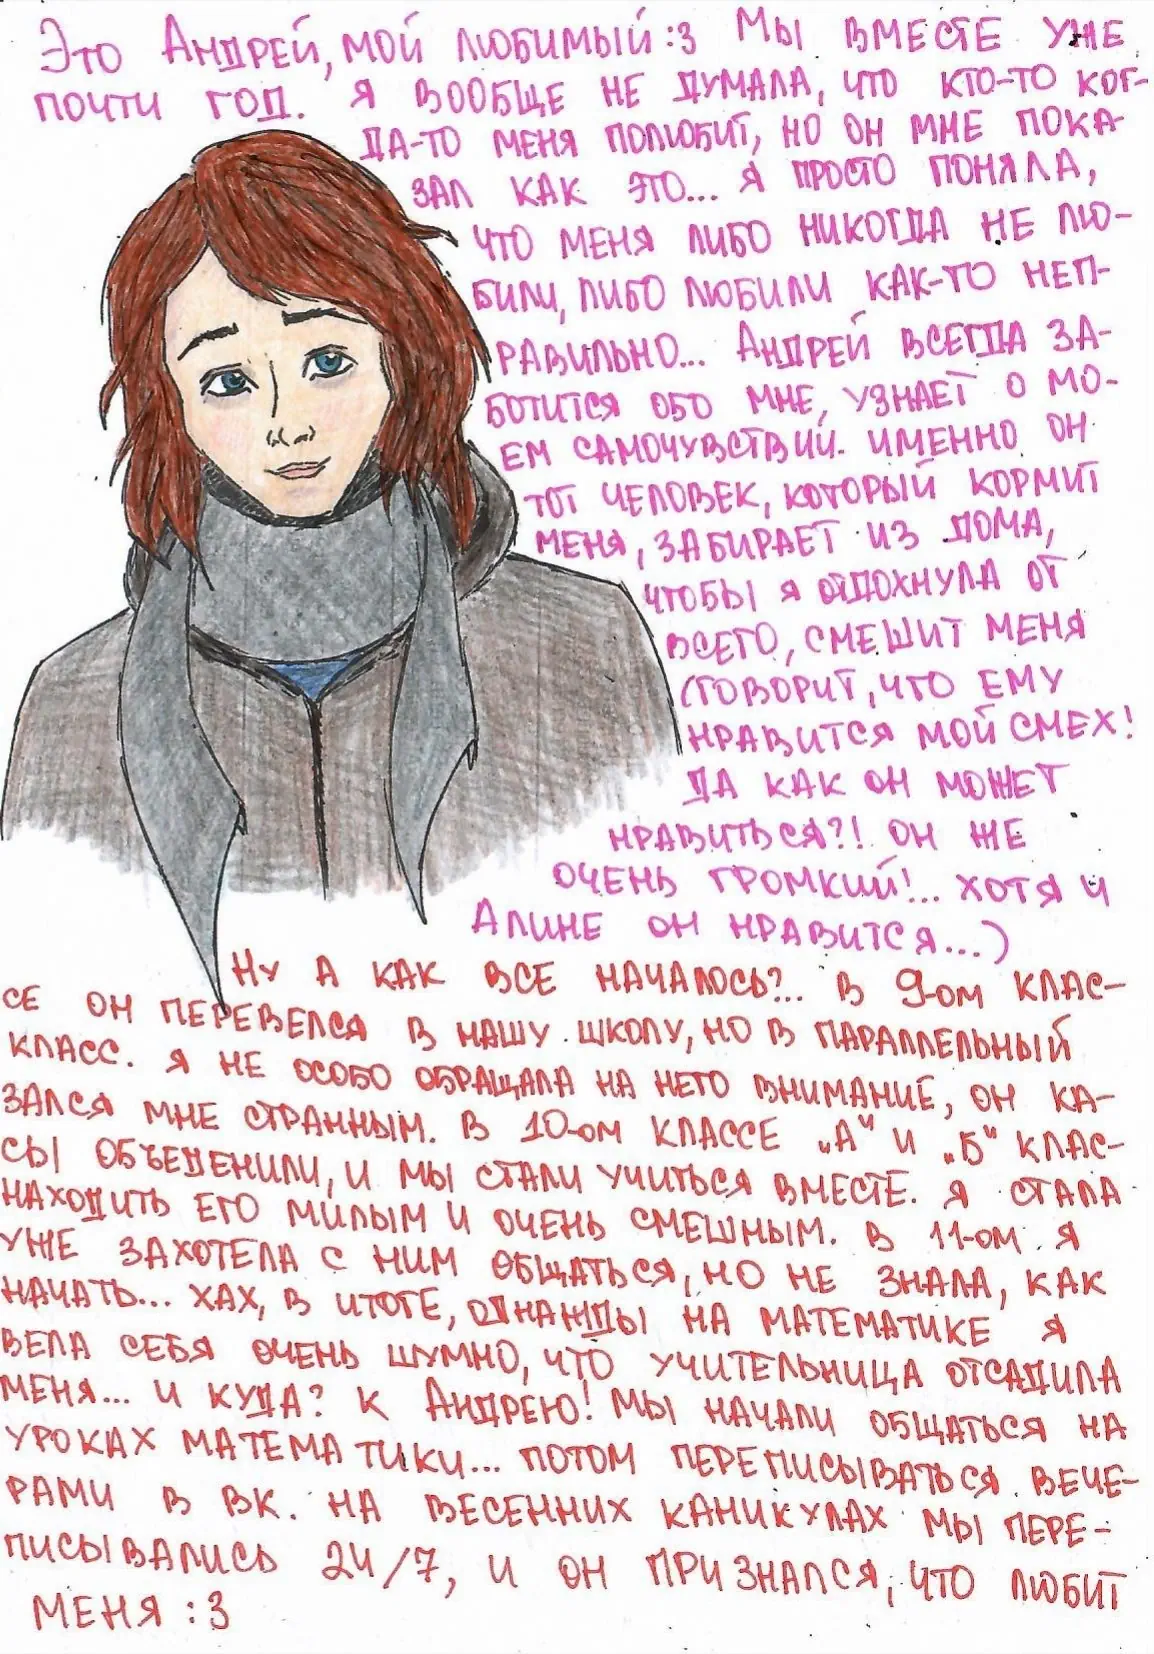 Это Андрей, мой любимый :3 Мы вместе уже
почти год. Я вообще не думала, что кто-то ког-
да-то меня полюбит, но он мне пока-
зал как это... Я просто поняла,
что меня либо никогда не лю-
били, либо любили как-то неп-
равильно... Андрей всегда за-
ботится обо мне, узнает о мо-
ем самочувствий. Именно он
тот человек, который кормит
меня, забирает из дома,
чтобы я отдохнула от
всего, смешит меня
(говорит, что ему
нравится мой смех!
Да как он может
нравиться?! Он же
очень громкий!.. хотя и
Алине он нравится...)
Ну а как все началось?.. В 9-ом клас-
се он перевелся в нашу школу, но в параллельный
класс. Я не особо обращала на него внимание, он ка-
зался мне странным. В 10-ом классе „А" и „Б" клас-
сы объеденили, и мы стали учиться вместе. Я стала
находить его милым и очень смешным. В 11-ом я
уже захотела с ним общаться, но не знала, как
начать... Хах, в итоге, однажды на математике я
вела себя очень шумно, что учительница отсадила
меня... И куда? К Андрею! Мы начали общаться на
уроках математики... потом переписываться вече-
рами в ВК. На весенних каникулах мы пере-
писывались 24/7, и он признался, что любит
меня :3